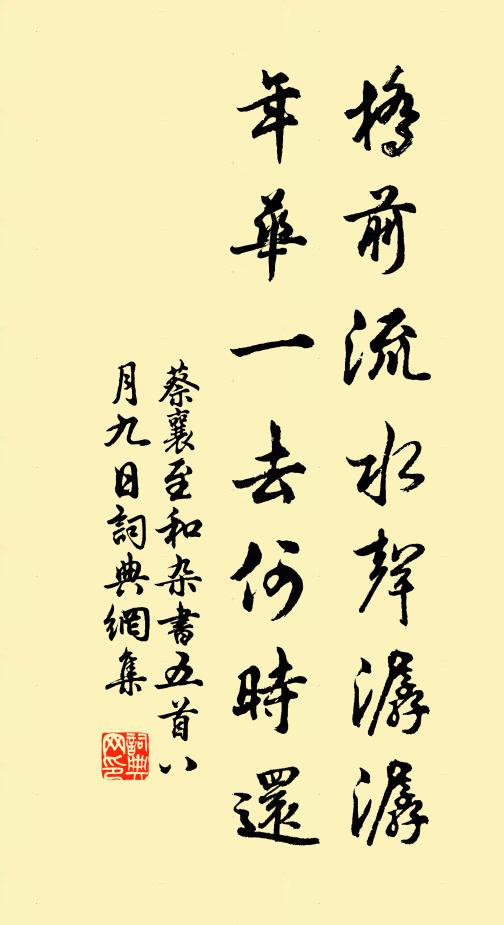 橋前流水聲潺潺
年華一去何時還
蔡襄至和杂書五首八
月九日詞典網集
詞典
网印